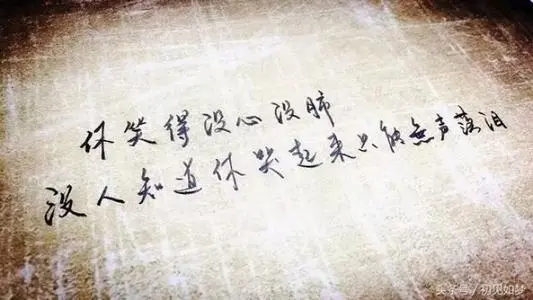 你笑得没心没肺
没人知道你哭起来只能無声落泪
头条号／初见如梦